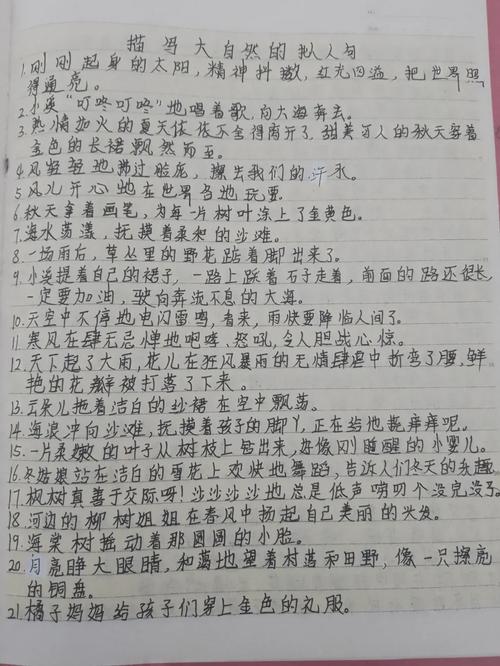 描写大自然的拟人句
1.刚刚起身的太阳，精神抖擞，红光四溢，把世界照
得通亮。
2.小溪“叮咚叮咚”地唱着歌，向大海奔去。
3.热情如火的夏天依依不舍得离开了，甜美可人的秋天穿着
金色的长裙飘然而至。
4.风轻轻地拂过脸庞，擦去我们的汗水。
5.风儿开心地在世界各地玩耍。
6.秋天拿着画笔，为每一片树叶涂上了金黄色。
7.海水荡漾，抚摸着柔和的沙滩。
8.一场雨后，草丛里的野花踮着脚出来了。
9.小溪提着自己的裙子，一路上踩着石子走着，前面的路还很长
一定要加油，驶向奔流不息的大海。
10.天空中不停地电闪雷鸣，看来，雨快要降临人间了。
11.寒风在肆无忌惮地咆哮、怒吼，令人胆战心惊。
12.天下起了大雨，花儿在狂风暴雨的无情肆虐中折弯了腰，鲜
艳的花瓣被打落了下来。
13.云朵儿拖着洁白的纱裙在空中飘荡。
14.海浪冲向沙滩，抚摸着孩子的脚丫，正在给他挠痒痒呢。
15.一片柔嫩的叶子从树枝上钻出来，好像刚睡醒的小婴儿。
16.冬姑娘站在洁白的雪花上欢快地舞蹈，告诉人们冬天的乐趣
17.枫树真善于交际呀！沙沙沙沙地总是低声唠叨个没完没了。
18.河边的柳树姐姐在春风中扬起自己美丽的头发。
19.海棠树摇动着那圆圆的小脸。
20.月亮睁大眼睛，和蔼地望着村落和田野，像一只擦亮
的铜盘。
21.橘子妈妈给孩子们穿上金色的礼服。